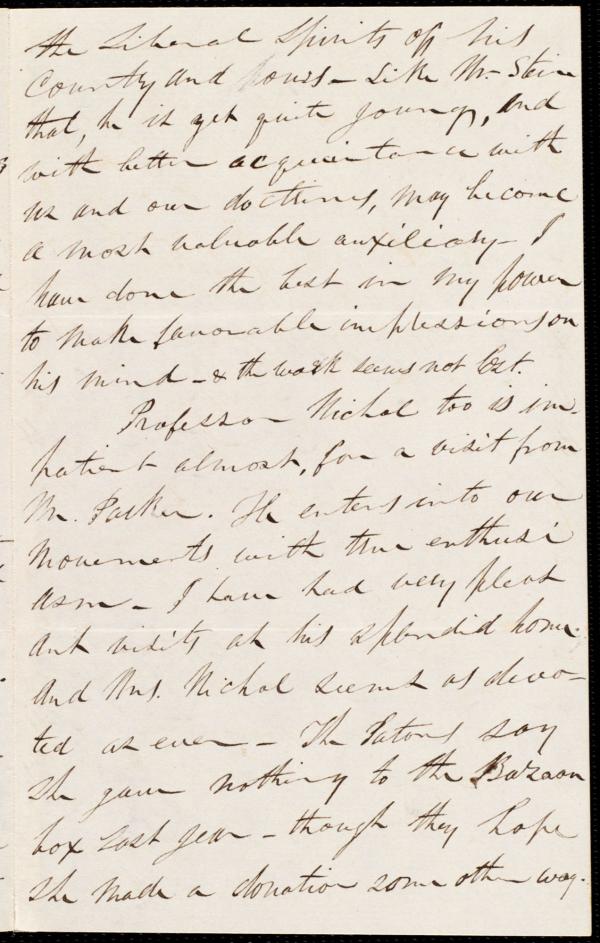 the Liberal Spirits of his
County and house – Like Mr. Stein
that, he is yet quite young, and
with better acquaintance with
us and our doctrines, may become
a most valuable auxiliary – I
have done the best in my power
to make favorable impressions on
his mind – & the work seems not lost.
Professor Nichol too is im-
patient almost, for a visit from
Mr. Parker. He enters into our
movements with true enthusi
asm – I have had very pleas
ant visits at his splendid home.
And Mrs. Nichol seems as devo-
ted as ever – The Patons say
she gave nothing to the Bazaar
box last year – though they hope
she made a donation some other way.